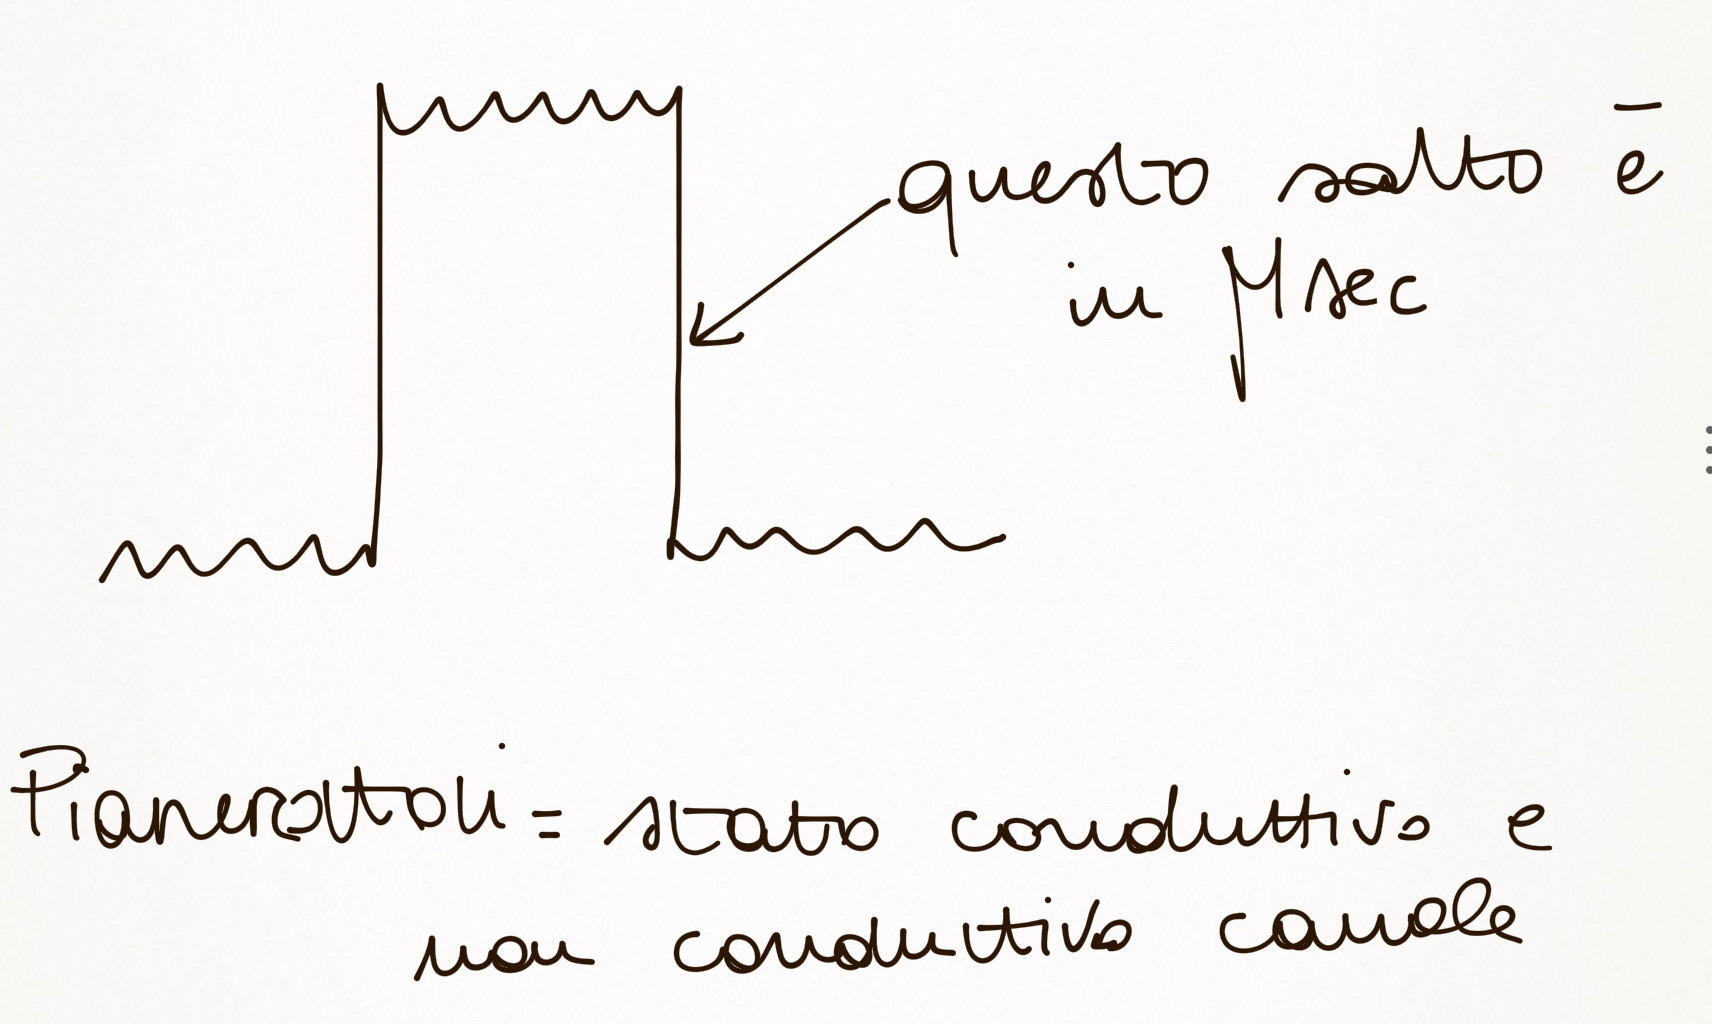 questo salto ē
in μsec
Pianerottoli = stato conduttivo e
non conduttivo canale